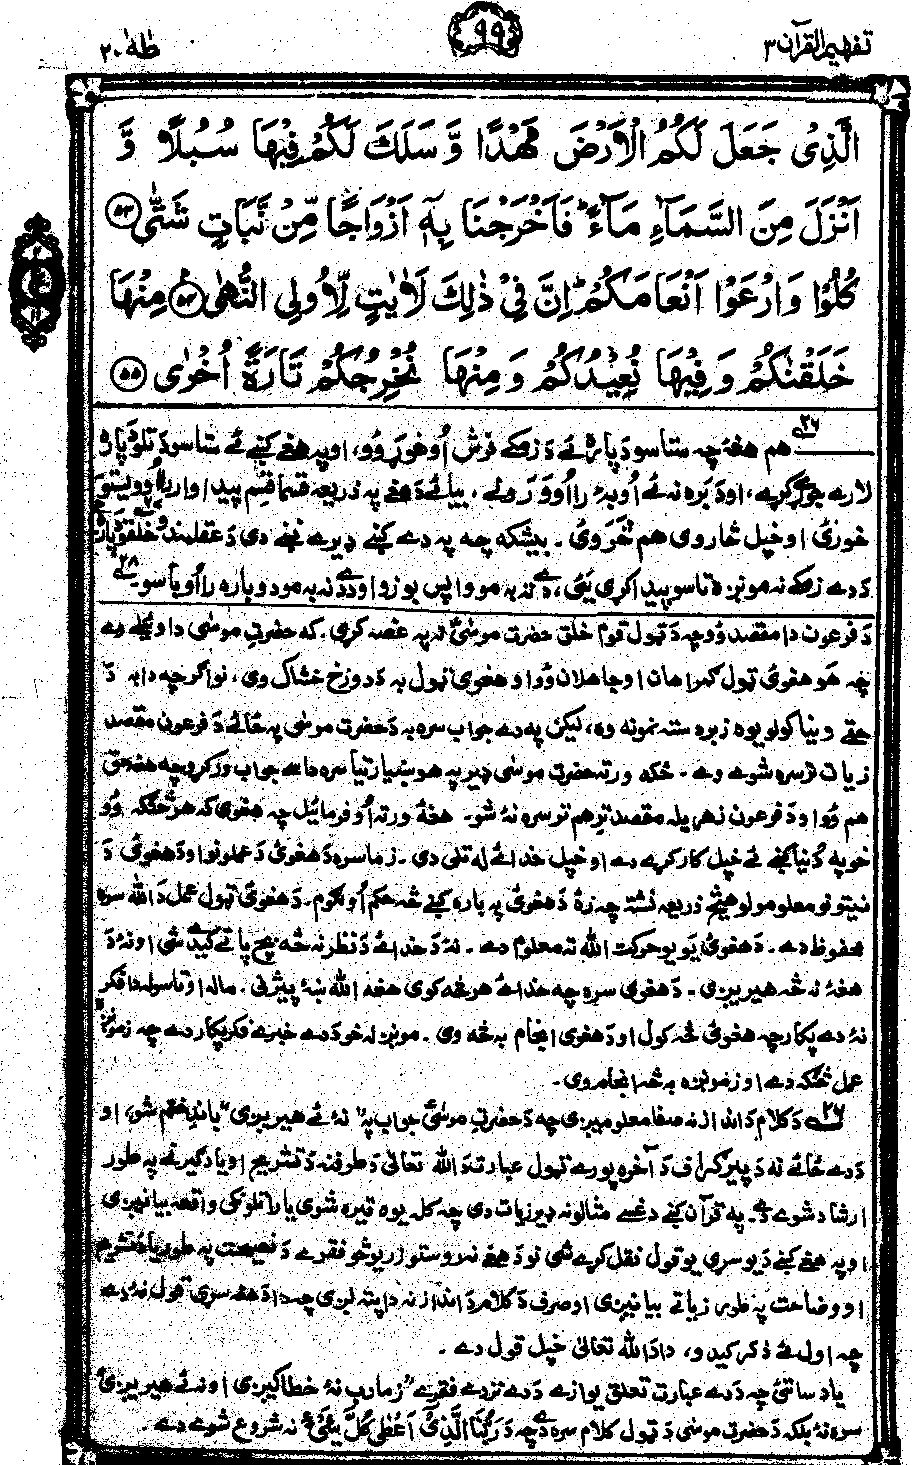 تفهيم القرآن ٣
٩٩
طٰهٰ ٢٠
الَّذِىْ جَعَلَ لَكُمُ الْاَرْضَ مَهْدًا وَّ سَلَكَ لَكُمْ فِيْهَا سُبُلًا وَّ
اَنْزَلَ مِنَ السَّمَآءِ مَآءً ؕ فَاَخْرَجْنَا بِهٖٓ اَزْوَاجًا مِّنْ نَّبَاتٍ شَتّٰى ﴿٥٣﴾
كُلُوْا وَارْعَوْا اَنْعَامَكُمْ ؕ اِنَّ فِىْ ذٰلِكَ لَاٰيٰتٍ لِّاُولِى النُّهٰى ﴿٥٤﴾ مِنْهَا
خَلَقْنٰكُمْ وَ فِيْهَا نُعِيْدُكُمْ وَ مِنْهَا نُخْرِجُكُمْ تَارَةً اُخْرٰى ﴿٥٥﴾
٢٧ هم هغهٔ چه ستاسو دَ پاره ئے دَ زمکے فرش اُوغوړوو، اوپه هغے کښے ئے ستاسو دَ تلو دَ پاره
لارے جوړے کړے، اودَ بره نه ئے اُوبهٔ رااُوورولے، بيائے دَ هغے په ذريعه قسما قسم پيداوار
خورئ اوخپل څاروى هم څروئ ـ بيشکه چه په دے کښے ډيرے نخے دى دَ عقلمند خلقو دَ پاره
دَ دے زمکے نه مونږ تاسو پيدا کړى يئ، دے ته به مو واپس بوزو اودے نه به مو دوباره رااُوباسو ـ ٢٨
دَ فرعون دا مقصد وُو چه دَ ټول قوم خلق حضرت موسٰىؑ ته په غصه کړى ـ که حضرت موسٰى دا وئيلے وے
چه هو هغوئ ټول ګمراهان اوجاهلان وُو اوهغوئ ټول به دَ دوزخ خشاک وى، نو اګرچه دا به دَ
حقے وينا کولو يوه زبردسته نمونه وه، ليکن په دے جواب سره به دَ حضرت موسٰى په ځائے دَ فرعون مقصد
زيات ترسره شوے وے ـ ځکه ورته حضرت موسٰى ډير په هوښيارتيا سره داسے جواب ورکړو چه هغه حق
هم وُو اودَ فرعون زهريله مقصد ترے هم ترسره نهٔ شو ـ هغهٔ ورته اُوفرمائيل چه هغوى که هر څنګه وُو
خو په دُنيا کښے ئے خپل کار کړے دے اوخپل خدائے له تلى دى ـ زما سره دَ هغوئ دَ عملونو اودَ هغوئ دَ
نيتونو معلومولو هيڅ ذريعه نشته چه زهٔ دَ هغوئ په باره کښے څه حکم اُولګوم ـ دَ هغوئ ټول عمل دَ الله سره
محفوظ دے ـ دَ هغوئ يو يو حرکت الله ته معلوم دے ـ نهٔ دَ خدائے دَ نظر نه څه بچ پاتے کيدے شى اونهٔ دَ
هغهٔ نه څه هيريږى ـ دَ هغوى سره چه خدائے هر څه کوى هغه الله ښهٔ پيژنى ـ ماله اوتاسو له دا فکر
نهٔ دے پکار چه هغوئ څه کول اودَ هغوى انجام به څه وى ـ مونږ له خو دَ دے خبرے فکر پکار دے چه زمونږ
عمل څنګه دے اوزمونږه به څه انجام وى ـ
٢٧ے دَ کلام دَ انداز نه صفا معلوميږى چه دَ حضرت موسٰىؑ جواب په "نهٔ ئے هيريږى" باندے ختم شو، او
دَ دے ځائے نه دَ پيرګراف دَ آخره پورے ټول عبارت دَ الله تعالىٰ دَ طرف نه دَ تشريح اويادګيرنے په طور
ارشاد شوے دے ـ په قرآن کښے دغسے مثالونه ډير زيات دى چه کله يوه تيره شوى يا راتلونکى واقعه بيانيږى
اوپه هغے کښے دَ يو سړى يو قول نقل کړے شى نو دَ هغے نه وروستو زر يو څو فقرے دَ نصيحت په طور يا دَ تشريح
اووضاحت په طور زياتے بيانيږى اوصرف دَ کلام دَ انداز نه دا پته لږى چه دا دَ هغه سړى قول نهٔ دے
چه اول ئے ذکر کيدو، دا دَ الله تعالىٰ خپل قول دے ـ
ياد ساتئ چه دَ دے عبارت تعلق يوازے دَ دے نزدے فقرے "زما رب نهٔ خطا کيږى اونهٔ ئے هيريږى"
سره نهٔ بلکه دَ حضرت موسٰى دَ ټول کلام سره دے چه دَ رَبُّنَا الَّذِىْٓ اَعْطٰى كُلَّ شَىْءٍ نه شروع شوے دے ـ